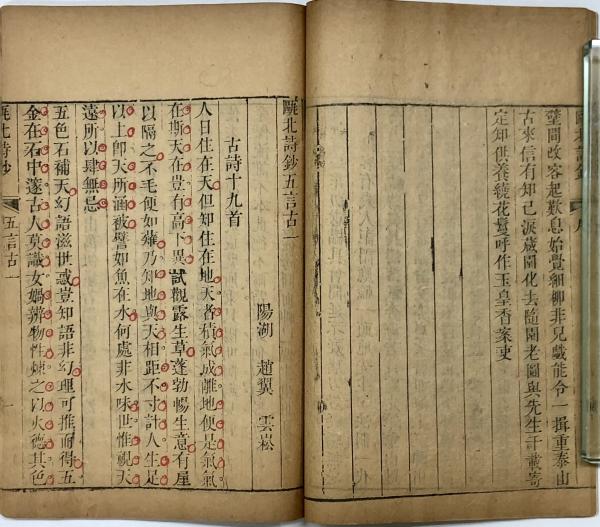 葉間改容起歎息始覺細柳非兒戲能令一揖重泰山
古來信有知己淚蔵園化去隨園老圖與先生千載寄
定知供養繞花鬘呼作玉皇香案吏
甌北詩鈔五言古一
陽湖 趙翼 雲崧
古詩十九首
人日住在天但知住在地天者積氣成離地便是氣氣
在斯天在豈有高下異試觀露生草蓬勃暢生意有屋
以隔之不毛便如薙乃知地與天相距不寸計人生足
以上卽天所涵被譬如魚在水何處非水味世惟視天
遠所以肆無忌
五色石補天幻語滋世惑豈知語非幻理可推而得五
金在石中邃古人莫識女媧辨物性煉之以火德其色
甌北詩鈔
五言古一
一